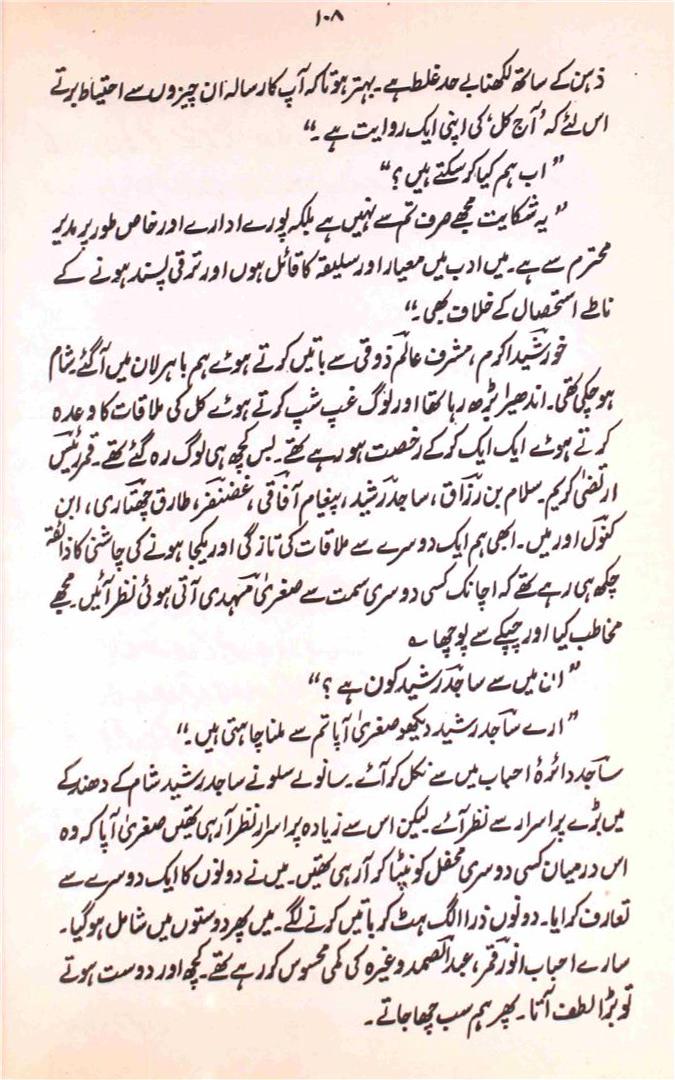 ۱۰۸
ذہن کے ساتھ لکھنا بے حد غلط ہے۔ بہتر ہوتا کہ آپ کا رسالہ ان چیزوں سے احتیاط برتے
اس لئے کہ ’آج کل‘ کی اپنی ایک روایت ہے۔“
”اب ہم کیا کر سکتے ہیں؟“
”یہ شکایت مجھے صرف تم سے نہیں ہے بلکہ پورے ادارے اور خاص طور پر مدیر
محترم سے ہے۔ میں ادب میں معیار اور سلیقہ کا قائل ہوں اور ترقی پسند ہونے کے
ناطے استحصال کے خلاف بھی۔“
خورشید اکرم، مشرف عالم ذوقی سے باتیں کرتے ہوئے ہم باہر لان میں آ گئے۔ شام
ہو چکی تھی۔ اندھیرا بڑھ رہا تھا اور لوگ غپ شپ کرتے ہوئے کل کی ملاقات کا وعدہ
کرتے ہوئے ایک ایک کر کے رخصت ہو رہے تھے۔ بس کچھ ہی لوگ رہ گئے تھے۔ قمر رئیس
ارتضیٰ کریم۔ سلام بن رزاق، ساجد رشید، پیغام آفاقی، غضنفر، طارق چھتاری، ابن
کنول اور میں۔ ابھی ہم ایک دوسرے سے ملاقات کی تازگی اور یکجا ہونے کی چاشنی کا ذائقہ
چکھ ہی رہے تھے کہ اچانک کسی دوسری سمت سے صغریٰ مہدی آتی ہوئی نظر آئیں۔ مجھے
مخاطب کیا اور چپکے سے پوچھا ؎
”ان میں سے ساجد رشید کون ہے؟“
”ارے ساجد رشید دیکھو صغریٰ آپا تم سے ملنا چاہتی ہیں۔“
ساجد دائرۂ احباب میں سے نکل کر آئے۔ سانولے سلونے ساجد رشید شام کے دھندلکے
میں بڑے پراسرار سے نظر آئے۔ لیکن اس سے زیادہ پراسرار نظر آ رہی تھیں صغریٰ آپا کہ وہ
اس درمیان کسی دوسری محفل کو نپٹا کر آ رہی تھیں۔ میں نے دونوں کا ایک دوسرے سے
تعارف کرایا۔ دونوں ذرا الگ ہٹ کر باتیں کرنے لگے۔ میں پھر دوستوں میں شامل ہو گیا۔
سارے احباب انور قمر، عبدالصمد وغیرہ کی کمی محسوس کر رہے تھے۔ کچھ اور دوست ہوتے
تو بڑا لطف آتا۔ پھر ہم سب چھا جاتے۔